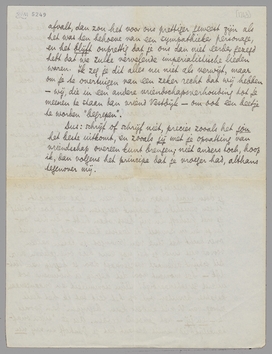 afvalt, dan zou het voor ons prettiger geweest zijn als
het was ten behoeve van een sympathieke personage,
en het blijft onprettig dat je ons dan niet eerder gezegd
hebt dat we zulke vervelende imperialistische lieden
waren. Ik zeg je dit alles nu niet als verwijt, maar
om je te overtuigen van een zeker recht dat wij hadden
– wij, die in een andere vriendschapsverhouding tot je
meenen te staan dan vriend Vestdijk – om ook een beetje
te worden "begrepen".
Dus: schrijf of schrijf niet, precies zooals het jou
het beste uitkomt, en zooals jij met je opvatting van
vriendschap overeen kunt brengen; niet anders toch, hoop
ik, dan volgens het principe dat je vroeger had, althans
tegenover mij.